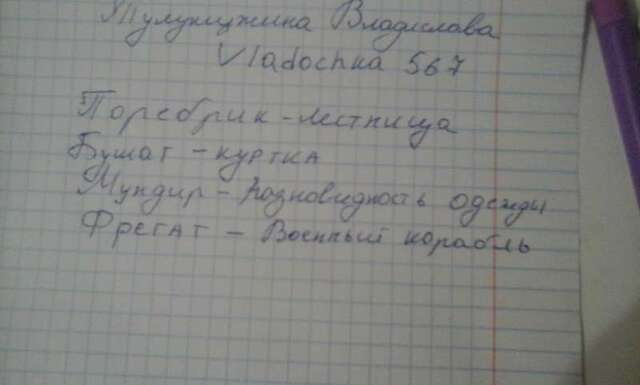 Тулукицжина Владислава
Vladochka 567
Поребрик - лестница
Бушат - куртка
Мундир - Разновидность одежды
Фрегат - Военный корабль